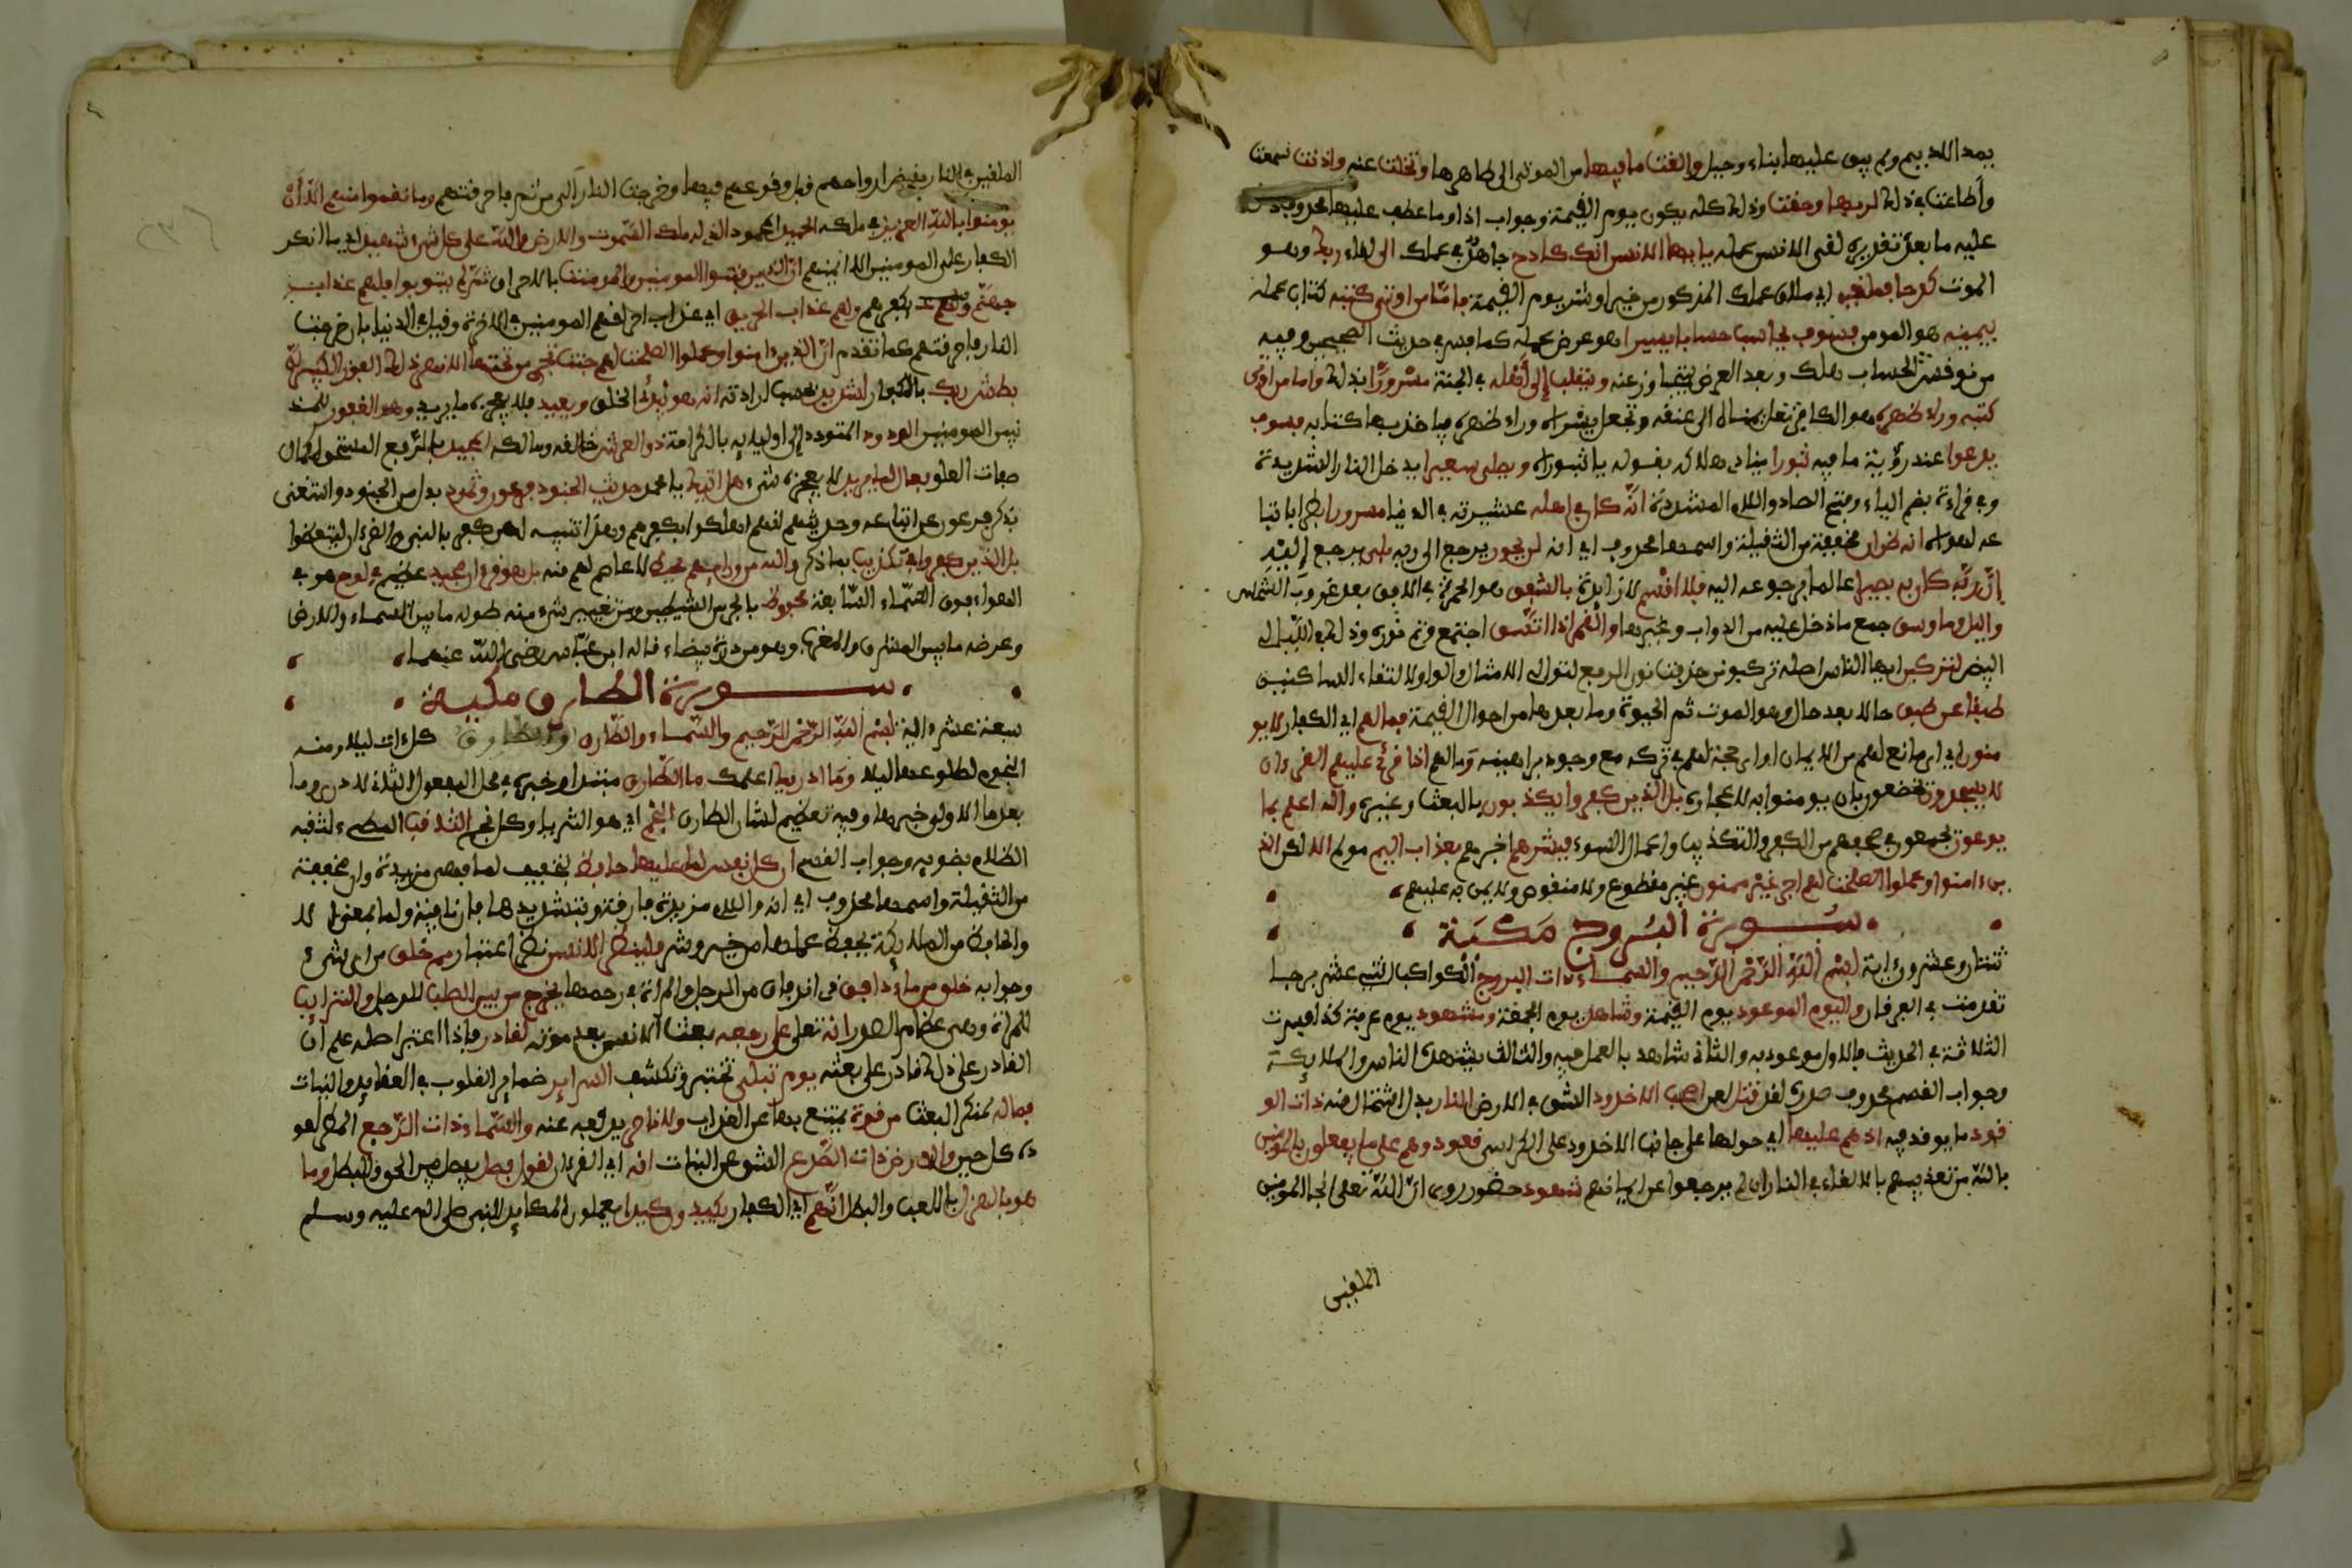 يمد الاديم ولم يبق عليها بناء وجبل والقت ما فيها من الموتى الى ظاهرها وتخلت عنه واذنت سمعت
واطاعت في ذلك لربها وحقت وذلك كله يكون يوم القيمة وجواب اذا وما عطف عليها محذوف دل
عليه ما بعده تقديره لقى الانسن عمله يايها الانسن انك كادح جاهد في عملك الى لقاء ربك وهو
الموت كدحا فملقيه اي ملاق عملك المذكور من خير او شر يوم القيمة فاما من اوتى كتبه كتاب عمله
بيمينه هو المومن فسوف يحاسب حسابا يسيرا هو عرض عمله كما فسر في حديث الصحيحين وفيه
من نوقش الحساب هلك وبعد العرض يتجاوز عنه وينقلب الى اهله في الجنة مسرورا بذلك واما من اوتى
كتبه وراء ظهره هو الكافر تغل يمناه الى عنقه وتجعل يسراه وراء ظهره فياخذ بها كتابه فسوف
يدعوا عند رؤية ما فيه ثبورا ينادي هلاكه بقوله يا ثبوراه ويصلى سعيرا يدخل النار الشديدة
وفي قراءة بضم الياء وفتح الصاد واللام المشددة انه كان في اهله عشيرته في الدنيا مسرورا بطرا باتبا
عه لهواه انه ظن ان مخففة من الثقيلة واسمها محذوف اي انه لن يحور يرجع الى ربه بلى يرجع اليه
ان ربه كان به بصيرا عالما برجوعه اليه فلا اقسم لا زايدة بالشفق هو الحمرة في الافق بعد غروب الشمس
واليل وما وسق جمع ما دخل عليه من الدواب وغيرها والقمر اذا اتسق اجتمع وتم نوره وذلك في الليالي
البيض لتركبن ايها الناس اصله تركبونن حذفت نون الرفع لتوالي الامثال والواو لالتقاء الساكنين
طبقا عن طبق حالا بعد حال وهو الموت ثم الحيوة وما بعدها من احوال القيمة فما لهم اي الكفار لا يو
منون اي اي مانع لهم من الايمان او اي حجة لهم في تركه مع وجود براهينه وما لهم اذا قرئ عليهم القرءان
لا يسجدون يخضعون بان يومنوا به لاعجازه بل الذين كفروا يكذبون بالبعث وغيره والله اعلم بما
يوعون يجمعون في صحفهم من الكفر والتكذيب واعمال السوء فبشرهم اخبرهم بعذاب اليم مولم الا لكن الذ
ين ءامنوا وعملوا الصلحت لهم اجر غير ممنون غير مقطوع ولا منقوص ولا يمن به عليهم
سورة البروج مكية
ثنتان وعشرون ءاية بسم الله الرحمن الرحيم والسماء ذات البروج الكواكب اثنى عشر برجا
تقدمت في الفرقان واليوم الموعود يوم القيمة وشاهد يوم الجمعة ومشهود يوم عرفة كذا فسرت
الثلاثة في الحديث فالاول موعود به والثاني شاهد بالعمل فيه والثالث يشهده الناس والملايكة
وجواب القسم محذوف صدره لقد قتل لعن اصحب الاخدود الشق في الارض النار بدل اشتمال منه ذات الو
قود ما يوقد فيه اذ هم عليها اي حولها على جانب الاخدود على الكراسي قعود وهم على ما يفعلون بالمومنين
بالله من تعذيبهم بالالقاء في النار ان لم يرجعوا عن ايمانهم شهود حضور روى ان الله تعلى انجا المومنين
الملقين
الملقين في النار بقبض ارواحهم قبل وقوعهم فيها وخرجت النار الى من ثم فاحرقتهم وما نقموا منهم الا ان
يومنوا بالله العزيز في ملكه الحميد المحمود الذي له ملك السموت والارض والله على كل شيء شهيد اي ما انكر
الكفار على المومنين الا ايمنهم ان الذين فتنوا المومنين والمومنت بالاحراق ثم لم يتوبوا فلهم عذاب
جهنم بكفرهم ولهم عذاب الحريق اي عذاب احراقهم المومنين في الاخرة وقيل في الدنيا بان خرجت
النار فاحرقتهم كما تقدم ان الذين ءامنوا وعملوا الصلحت لهم جنت تجري من تحتها الانهر ذلك الفوز الكبير ان
بطش ربك بالكفار لشديد بحسب ارادته انه هو يبدئ الخلق ويعيد فلا يعجزه ما يريد وهو الغفور للمذ
نبين المومنين الودود المتودد الى اوليايه بالكرامة ذو العرش خالقه ومالكه المجيد بالرفع المستحق لكمال
صفات العلو فعال لما يريد لا يعجزه شيء هل اتيك يا محمد حديث الجنود فرعون وثمود بدل من الجنود واستغنى
بذكر فرعون عن اتباعه وحديثهم انهم اهلكوا بكفرهم وهذا تنبيه لمن كفر بالنبي والقرءان ليتعظوا
بل الذين كفروا في تكذيب بما ذكر والله من ورايهم محيط لا عاصم لهم منه بل هو قرءان مجيد عظيم في لوح هو في
الهواء فوق السماء السابعة محفوظ بالجر من الشيطين ومن تغيير شيء منه طوله ما بين السماء والارض
وعرضه ما بين المشرق والمغرب وهو من درة بيضاء قاله ابن عباس رضي الله عنهما
سورة الطارق مكية
سبعة عشر ءاية بسم الله الرحمن الرحيم والسماء والطارق كل ءات ليلا ومنه
النجوم لطلوعها ليلا وما ادريك اعلمك ما الطارق مبتدا وخبره في محل المفعول الثاني لادرى وما
بعد ما الاولى خبرها وفيه تعظيم لشان الطارق النجم اي هو الثريا وكل نجم الثاقب المضيء لثقبه
الظلام بضويه وجواب القسم ان كل نفس لما عليها حافظ بتخفيف لما فهي مزيدة وان مخففة
من الثقيلة واسمها محذوف اي انه واللام مزيدة فارقة وبتشديدها فان نافية ولما بمعنى الا
والحافظ من الملايكة يحفظ عملها من خير وشر فلينظر الانسن نظر اعتبار مم خلق من اي شيء
وجوابه خلق من ماء دافق ذي اندفاق من الرجل والمراة في رحمها يخرج من بين الصلب للرجل والترايب
للمراة وهي عظام الصدر انه تعلى على رجعه بعث الانسن بعد موته لقادر فاذا اعتبر اصله علم ان
القادر على ذلك قادر على بعثه يوم تبلى تختبر وتكشف السراير ضماير القلوب في العقايد والنيات
فما له لمنكر البعث من قوة يمتنع بها عن العذاب ولا ناصر يدفعه عنه والسماء ذات الرجع المطر لعو
ده كل حين والارض ذات الصدع الشق عن النبات انه اي القرءان لقول فصل يفصل بين الحق والبطل وما
هو بالهزل باللعب والبطل انهم اي الكفار يكيدون كيدا يعملون المكايد للنبي صلى الله عليه وسلم